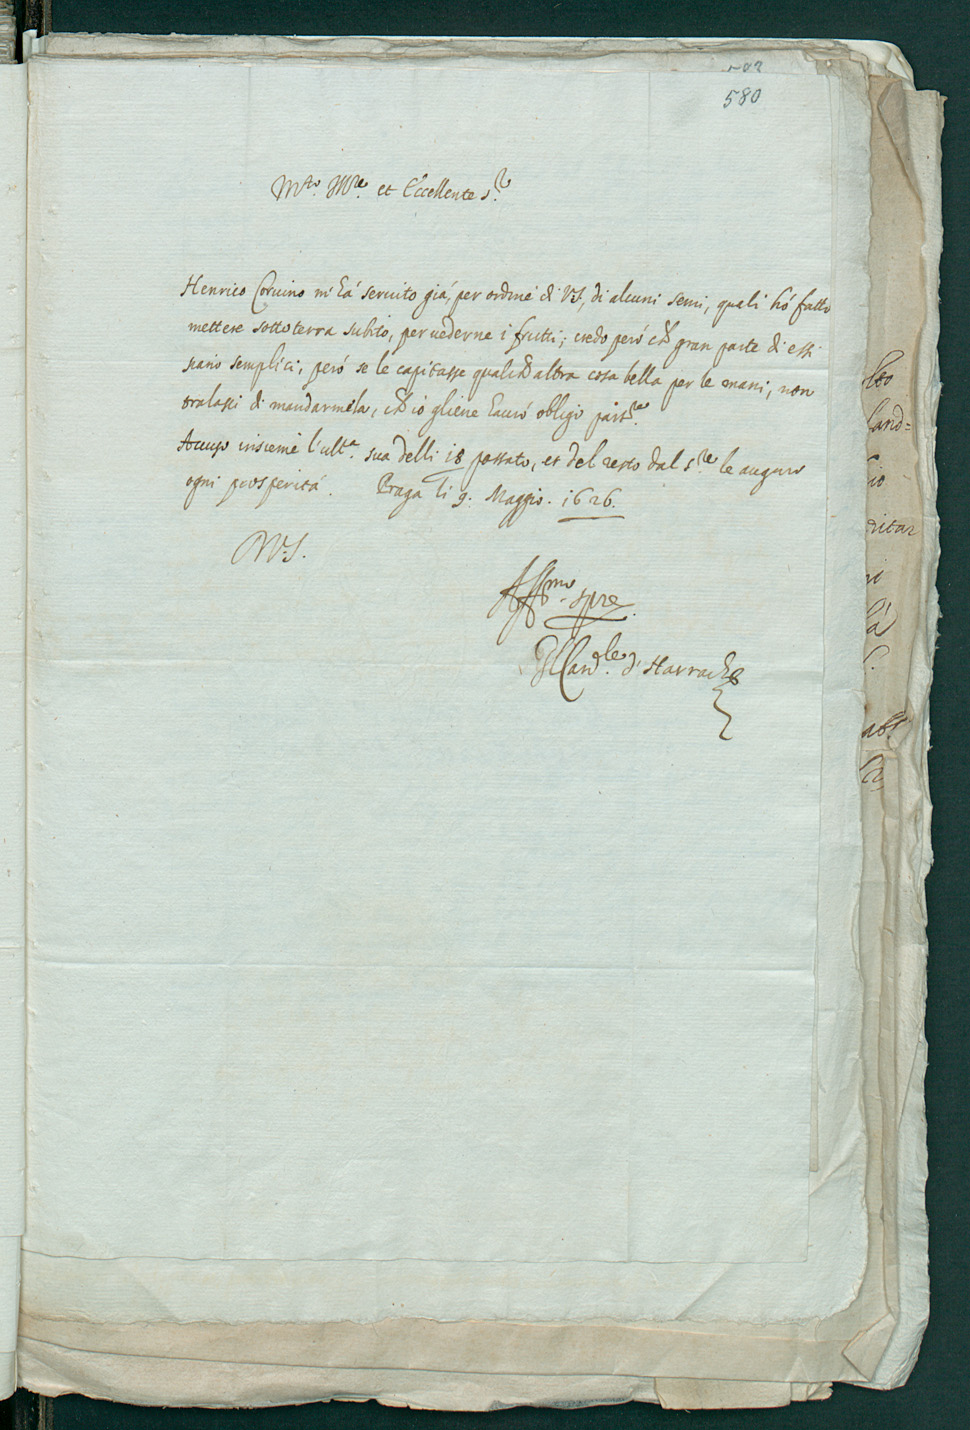 580
M.to Ill.re et Eccellente S.re
Henrico Corvino m'hà servito già, per ordine di VS, di alcuni semi, quali hò fatto
mettere sotto terra subito, per vederne i frutti; credo però ch gran parte di essi
siano semplici, però se le capitasse qualch altra cosa bella per le mani, non
tralassi di mandarmela, ch io gliene haurò obligo part.re
Accuso insieme l'ult.a sua delli 18 passato, et del resto dal S.re le auguro
ogni prosperità. Praga li 9. Maggio. 1626.
Aff.mo spre
Il Card.le d'Harrach